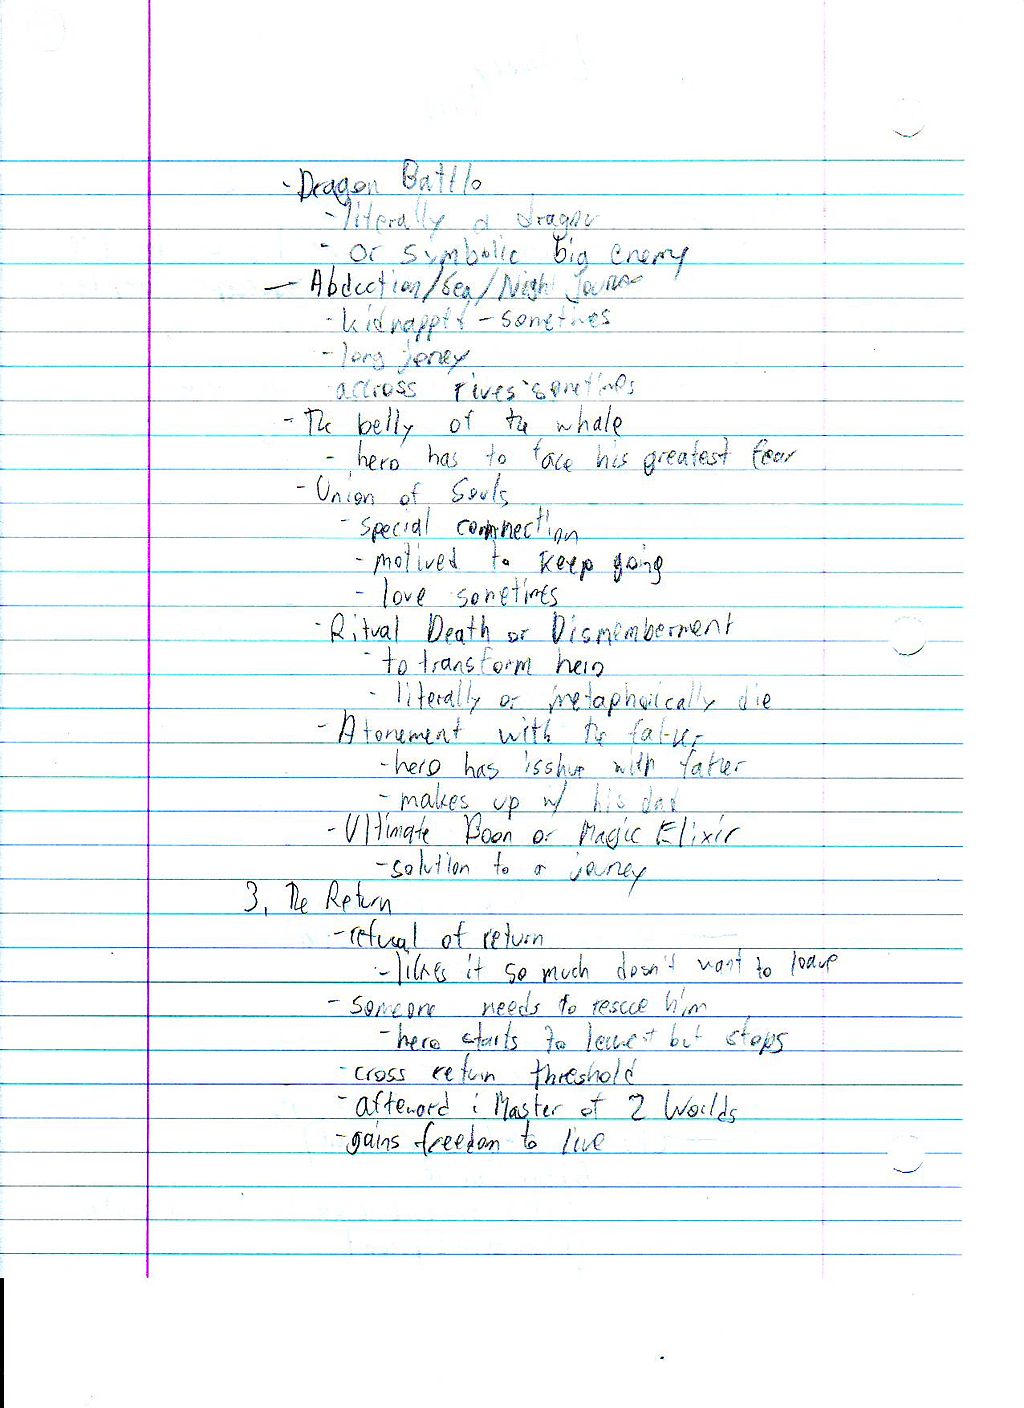 - Dragon Battle
- literally a dragon
- or symbolic big enemy
- Abduction/Sea/Night Journe
- kidnapped - sometimes
- long joney
accross rives sometimes
- The belly of the whale
- hero has to face his greatest fear
- Union of Souls
- special connection
- motived to keep going
- love sometimes
- Ritual Death or Dismemberment
- to transform hero
- literally or metaphorically die
- Atonement with the father
- hero has with father
- makes up w/ his dad
- Ultimate Boon or Magic Elixir
- solution to a journey
3. The Return
- refusal of return
- likes it so much doesn't want to leave
- someone needs to rescue him
- hero starts to but stops
- cross return threshold
- afterword : Master of 2 Worlds
- gains freedom to live